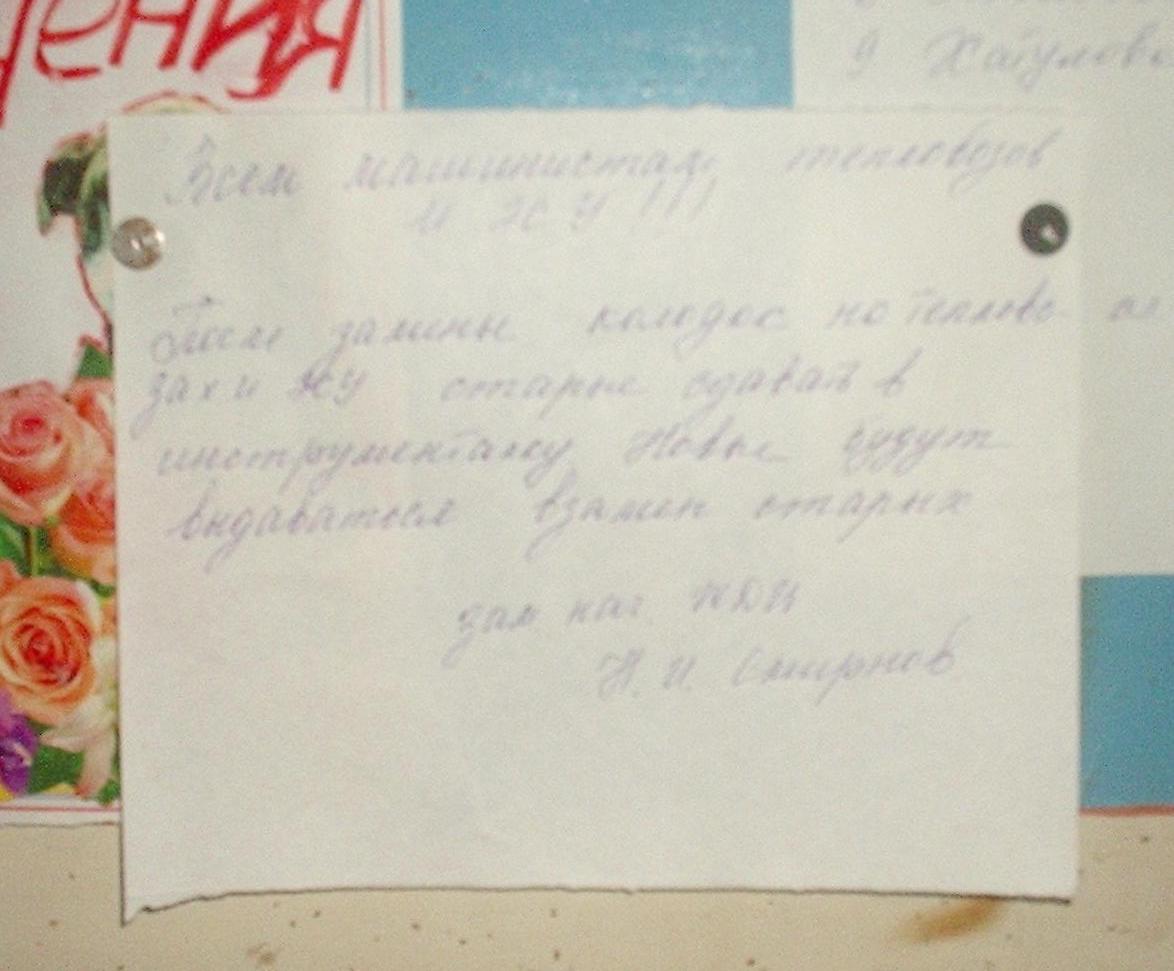 чения
9 Хатулов
Всем машинистам тепловозов
и ЖУ !!!
После замены колодок на теплово-
зах и ЖУ старые сдавать в
инструменталку Новые будут
выдаваться взамен старых
зам нач.
Н. И. Смирнов